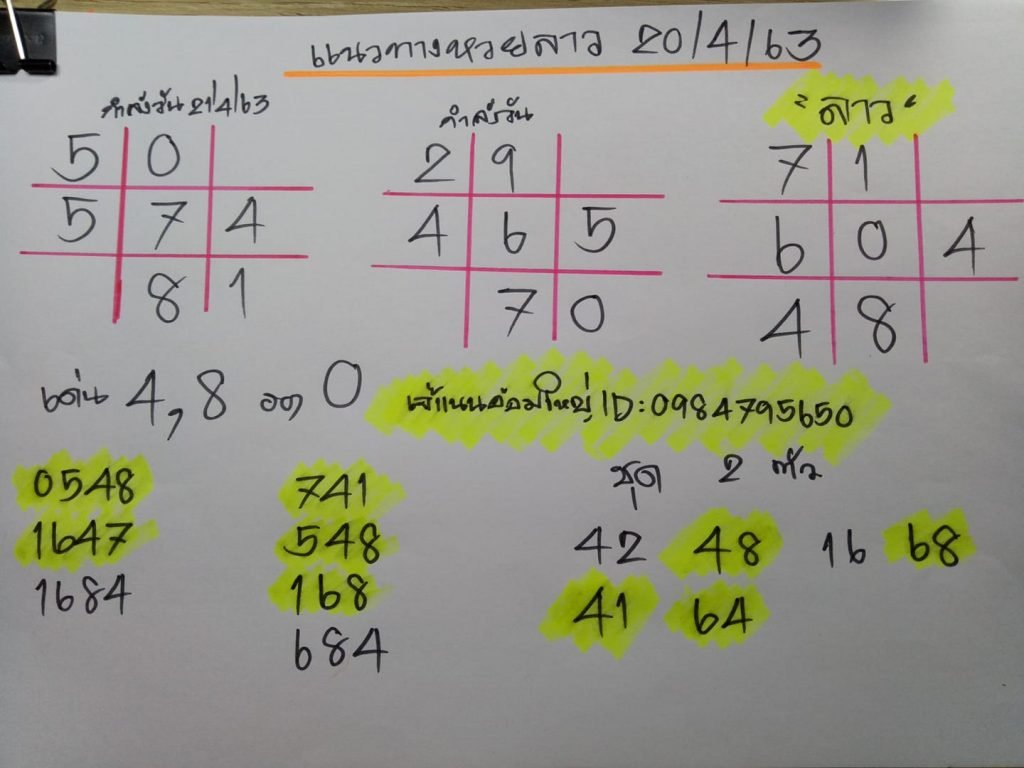 แนวทางหวยลาว 20/4/63
กำลังวัน 21/4/63
5 0
5 7 4
8 1
กำลังวัน
2 9
4 6 5
7 0
"ลาว"
7 1
6 0 4
4 8
เด่น 4,8 จด 0
เจ๊แนนอ้อมใหญ่ ID:0984795650
0548
1647
1684
741
548
168
684
ชุด 2 ตัว
42 48 16 68
41 64